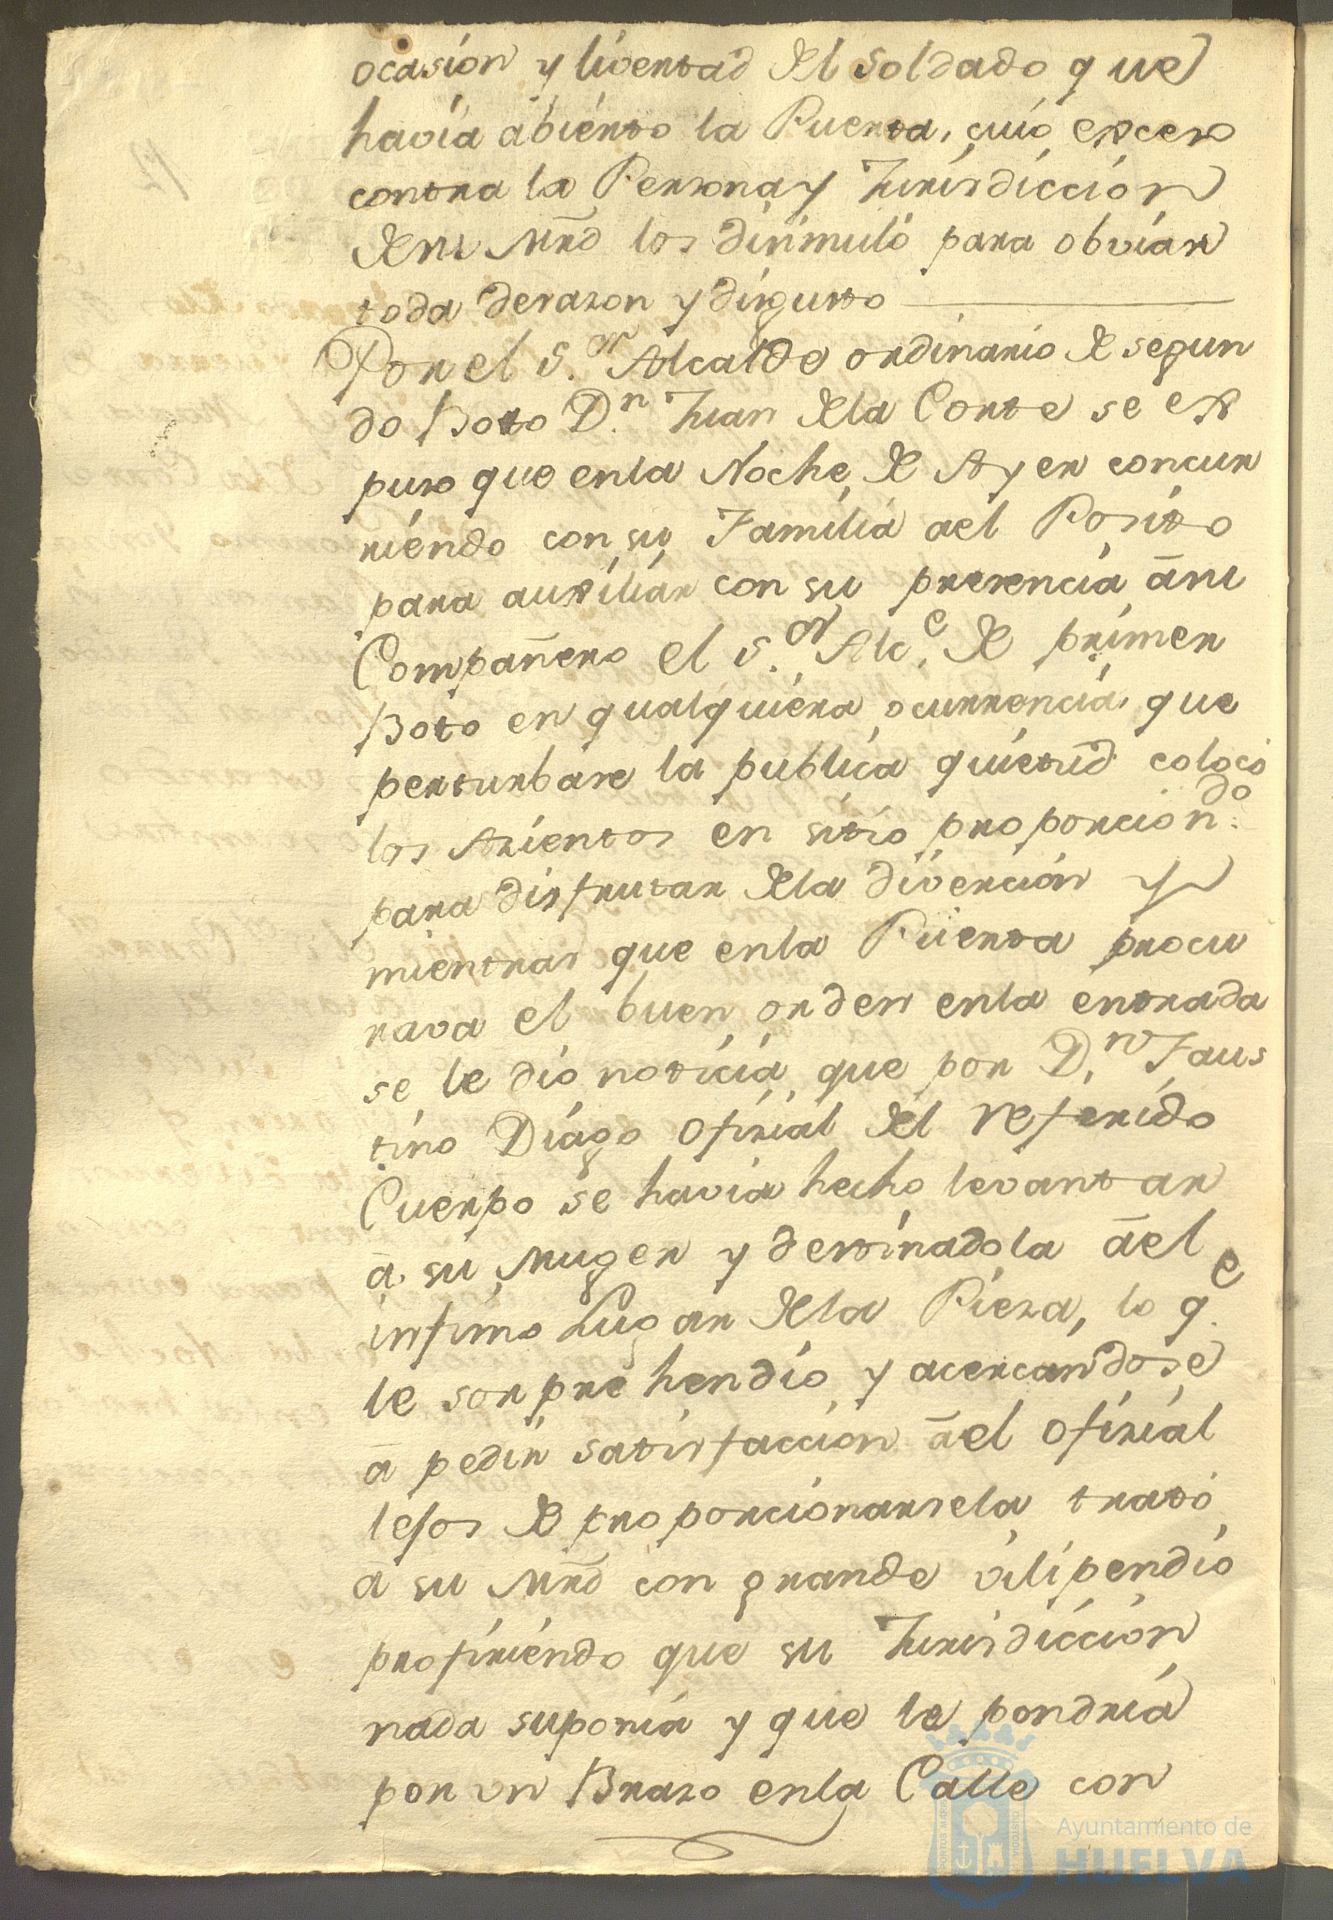 ocasion y livertad del soldado que
havia abierto la Puerta, cuio exceso
contra la Persona y Jurisdiccion
de su Mrd los disimuló para obviar
toda desazon y disgusto
Por el S.or Alcalde ordinario de segun
do Boto D.n Juan de la Corte se ex
puso que en la Noche de Ayer concur
riendo con su Familia ael Posito
para auxiliar con su presencia â su
Compañero el S.or Alc.e de primer
Boto en qualquiera ocurrencia que
perturbase la publica quietud colocó
los Asientos en sitio proporcion.do
para disfrutar de la divercion y
mientras que en la Puerta procu
rava el buen orden en la entrada
se le dio noticia que por D.n Faus
tino Diago Ofizial del referido
Cuerpo se havia hecho levantar
â su Muger y destinadola âel
infimo Lugar de la Pieza, lo q.e
le sorprehendio y acercandose
â pedir satisfaccion âel Ofizial
lejos de proporcionarsela trató
â su Mrd con grande vilipendio
profiriendo que su Jurisdiccion
nada suponia y que le pondria
por un Brazo en la Calle con
Ayuntamiento de
HUELVA